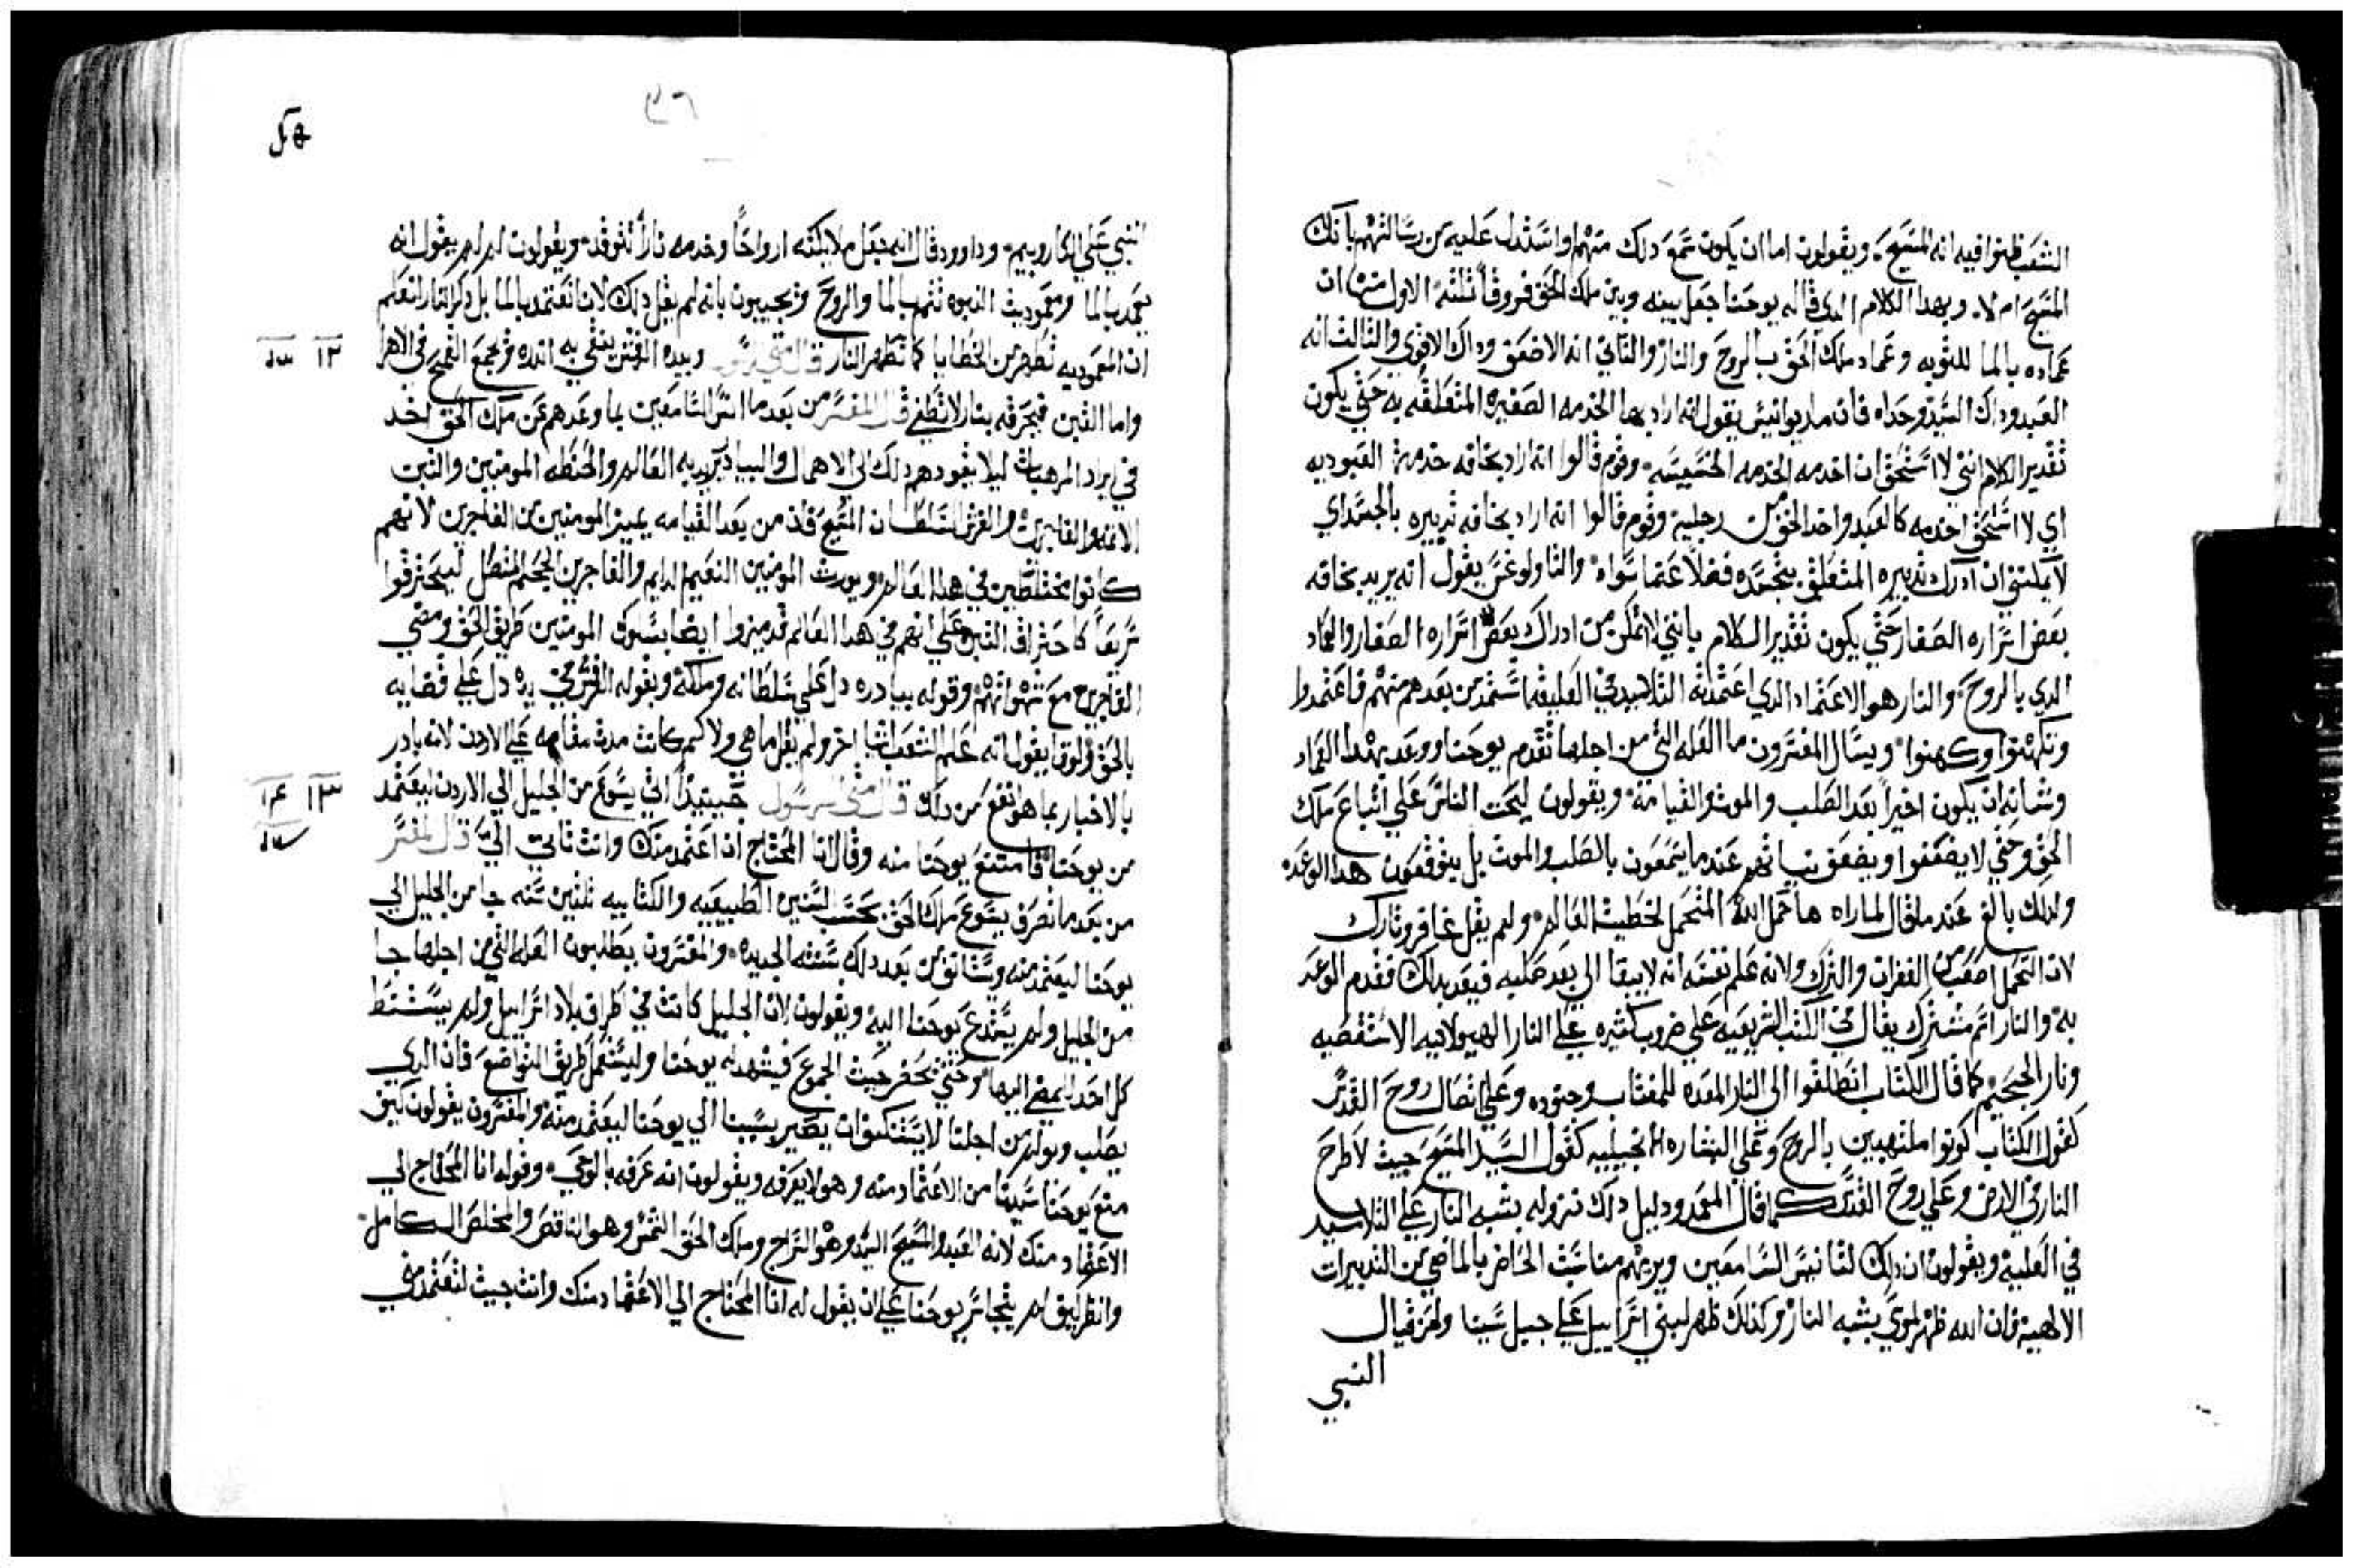 الشعب ظنوا فيه انه المسيح. ويقولون اما ان يكون سمع دلك منهم او استدل عليه من رسالتهم بانك
المسيح ام لا. وبهدا الكلام الدي قاله يوحنا جعل بينه وبين ملك الحق فروقاً ثلثه الاول منها ان
عماده بالما للتوبه وعماد ملك الحق بالروح والنار والثاني انه الاضعف وداك الاقوى والثالث انه
العبد وداك السيد وحداه فان ماريوانيس يقول انه اراد بها الخدمه الصغيره المتعلقه به حتي يكون
تقدير الكلام انني لا استحق ان اخدمه الخدمه الخسيسه. وقوم قالوا انه اراد بحداقه خدمة العبوديه
اي لا استحق اخدمه كالعبد واخد الخف من رجليه وقوم قالوا انه اراد بخافه تدبيره بالجسد اي
لا يمكنني ان ادرك تدبيره المتعلق بتجسده فضلاً عما سواه. والثاولوغس يقول انه يريد بخافه
بعض اسراره الصغار حتي يكون تقدير الكلام بانني لا اتمكن من ادراك بعض اسراره الصغار والعماد
الدي بالروح والنار هو الاعتماد الدي اعتمدته التلاميد في العليه استمد من بعدهم منهم فاعتمدوا
وتكهنوا وكهنوا. ويسال المفسرون ما العله التي من اجلها تقدم يوحنا ووعد بهدا العماد
وشانه ان يكون اخيراً بعد الصلب والموت والقيامة. ويقولون ليحث الناس علي اتباع ملك
الحق وحتي لا يضعفوا ويضعف ثباتهم عندما يسمعون بالصلب والموت بل يتوقعون هدا الوعد
ولدلك بالغ عند ما قال لما راه ها حمل الله المتحمل لخطيت العالم. ولم يقل غافر وتارك
لان التحمل اصعب من الغفران والترك ولانه علم نفسه انه لا يبقا الي بعد صلبه فيعد بدلك فقدم الوعد
به والنار اسم مشترك يقال في الكتب الشريعيه علي ضروب كثيره علي النار الهيولانيه الاسطقصيه
ونار الجحيم كما قال الكتاب انطلقوا الى النار المعده للمغتاب وجنوده وعلي اتصال روح القدس
كقول الكتاب كونوا ملتهبين بالروح وعلي البشاره الانجيليه كقول السيد المسيح جيت لاطرح
النار في الارض وعلي روح القدس كما قال المعمد ودليل دلك نزوله بشبه النار علي التلاميد
في العليه ويقولون ان دلك لتانيس السامعين ويريهم مناسبت الحاضر بالماضي من التدبيرات
الالهية فان الله ظهر لموسى بشبه النار وكدلك ظهر لبني اسراييل علي جبل سينا ولحزقيال
النبي
٣٦
النبي علي الكاروبيم. وداوود قال انه يجعل ملايكته ارواحاً وخدمه ناراً تتوقد. ويقولون لم لم يقول انه
يعمد بالما ومعموديت البنوه تتم بالما والروح ويجيبون بانه لم يقل دلك لان اتعتمد بالما بل دكر النار لتعلم
ان المعموديه تطهر من الخطايا كما تطهر النار قال متى الرسول وبيده الرفش ينقي به انده ويجمع القمح في الاهرا
١٢
واما التبن فيحرقه بنار لا تطفي قال المفسر من بعد ما انس السامعين بما وعدهم من ملك الحق اخد
في ايراد المرهبات ليلا يقودهم دلك الى الاهمال والبيادر يريد به العالم والحنطه المومنين والتبن
الاثمه والفاجرين والرفش السلطان المتبع فاد من بعد القيامه يميز المومنين من الفاجرين لانهم
كانوا مختلطين في هدا العالم. ويورث المومنين النعيم الدايم والفاجرين الجحيم المتصل ليحترقوا
سريعاً كاحتراق التبن وعلي انهم في هدا العالم قد ميزوا ايضا بسلوك المومنين طريق الحق ومضي
الفاجرين مع شهواتهم وقوله بيادره دل علي سلطانه وملكه وبقوله الرفش في يده دل علي قضايه
بالحق ولوقا يقول انه علم الشعب اشيا اخر ولم يقل ما هي ولا كم كانت مدت مقامه علي الاردن لانه بادر
بالاخبار بما هو انفع من دلك قال متى الرسول حينيداً اتي يسوع من الجليل الي الاردن ليعتمد
١٣ ١٤
من يوحنا. فامتنع يوحنا منه وقال انا المحتاج ان اعتمد منك وانت تاتي الي قال المفسر
من بعد ما تصرف يسوع ملك الحق بحسب السنين الطبيعيه والكتابيه ثلثين سنه جا من الجليل الي
يوحنا ليعتمد منه ويستانف من بعد دلك سنته الجديده. والمفسرون يطلبون العله التي من اجلها جا
من الجليل ولم يستدع يوحنا اليه ويقولون لان الجليل كانت في طرف بلاد اسراييل ولم ينشط
كل احد لمضي اليها. وحتي يحضر حيث الجموع فيشهد له يوحنا وليستعمل طريق التواضع فان الدي
يصلب ويولم من اجلنا لا يستنكف ان يصير بسببنا الي يوحنا ليعتمد منه والمفسرون يقولون كيف
منع يوحنا سيدنا من الاعتماد منه وهو لا يعرفه ويقولون انه عرفه بالوحي. وقوله انا المحتاج الي
الاعتماد منك لانه العبد والمسيح السيد وهو السراج وملك الحق الشمس وهو الناقص والمخلص الكامل
وانظر كيف لم يتجاسر يوحنا علي ان يقول له انا المحتاج الي الاعتماد منك وانت جيت لتعتمد مني